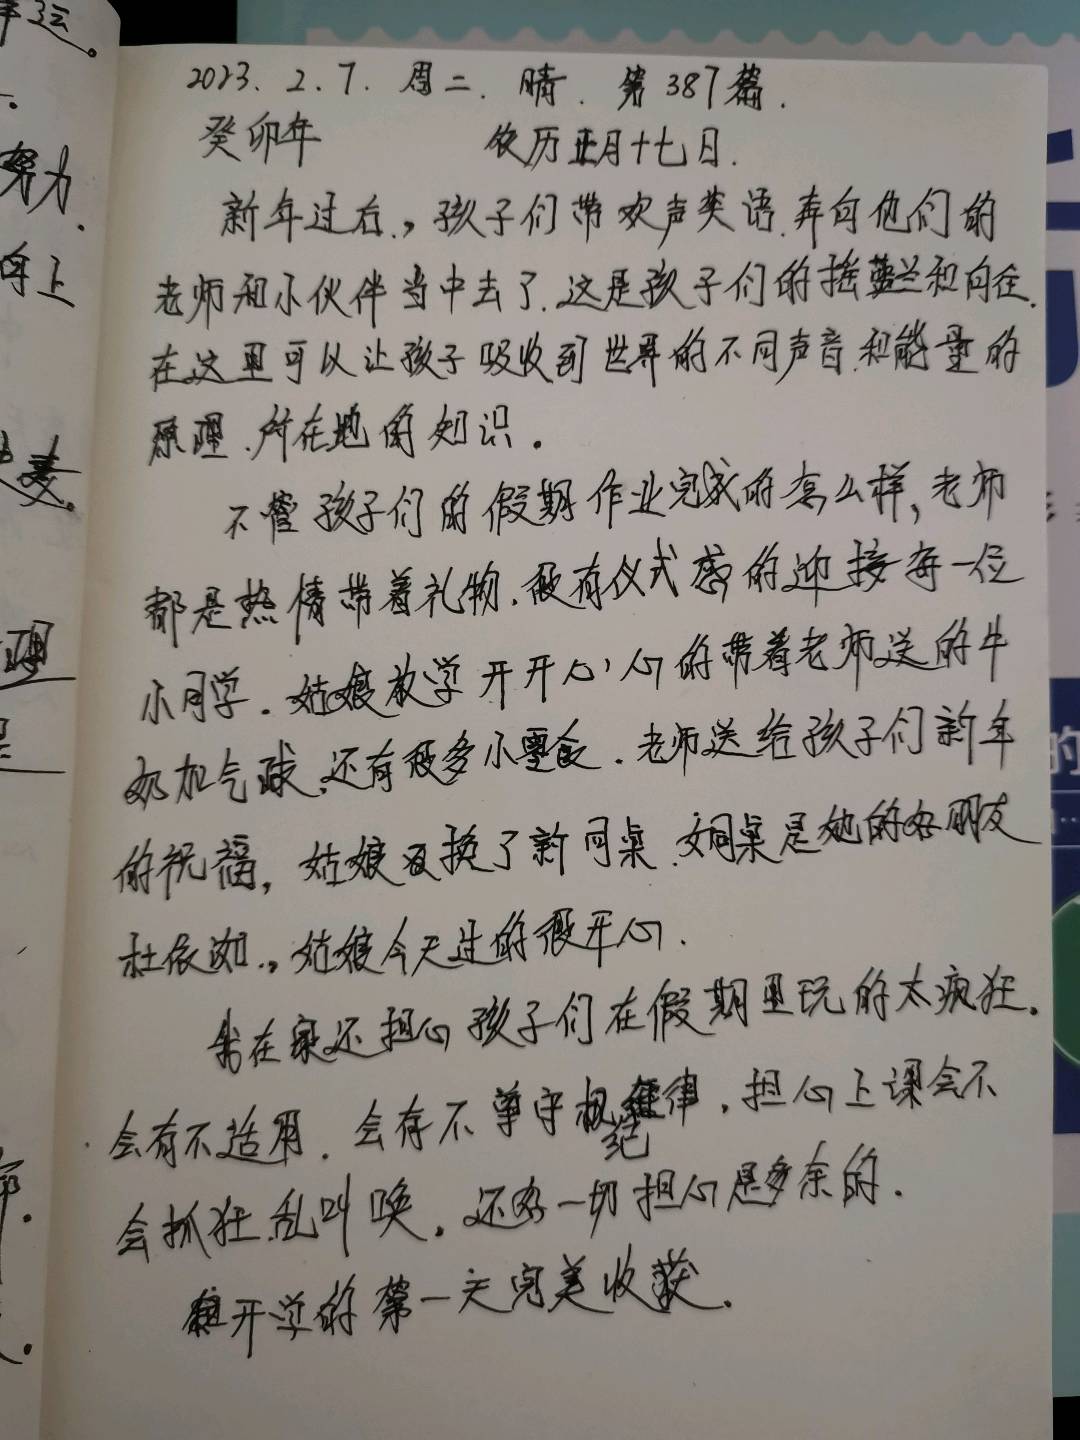 2023.2.7.周二.晴.第387篇.
癸卯年 农历正月十七日.
新年过后.,孩子们带欢声笑语.奔向他们的
老师和小伙伴当中去了.这是孩子们的摇篮和向往.
在这里可以让孩子吸收到世界的不同声音.和能量的
原理.所在地的知识。
不管孩子们的假期作业完成的怎么样,老师
都是热情带着礼物.很有仪式感的迎接每一位
小同学.姑娘放学开开心心的带着老师送的牛
奶加气球.还有很多小零食.老师送给孩子们新年
的祝福,姑娘又换了新同桌.女同桌是她的好朋友
杜依如.,姑娘今天过的很开心.
我在家还担心孩子们在假期里玩的太疯狂.
会有不适用.会有不尊守纪律.担心上课会不
会抓狂.乱叫唤.还好一切担心是多余的.
开学的第一天完美收获.
努力.
向上
理
的